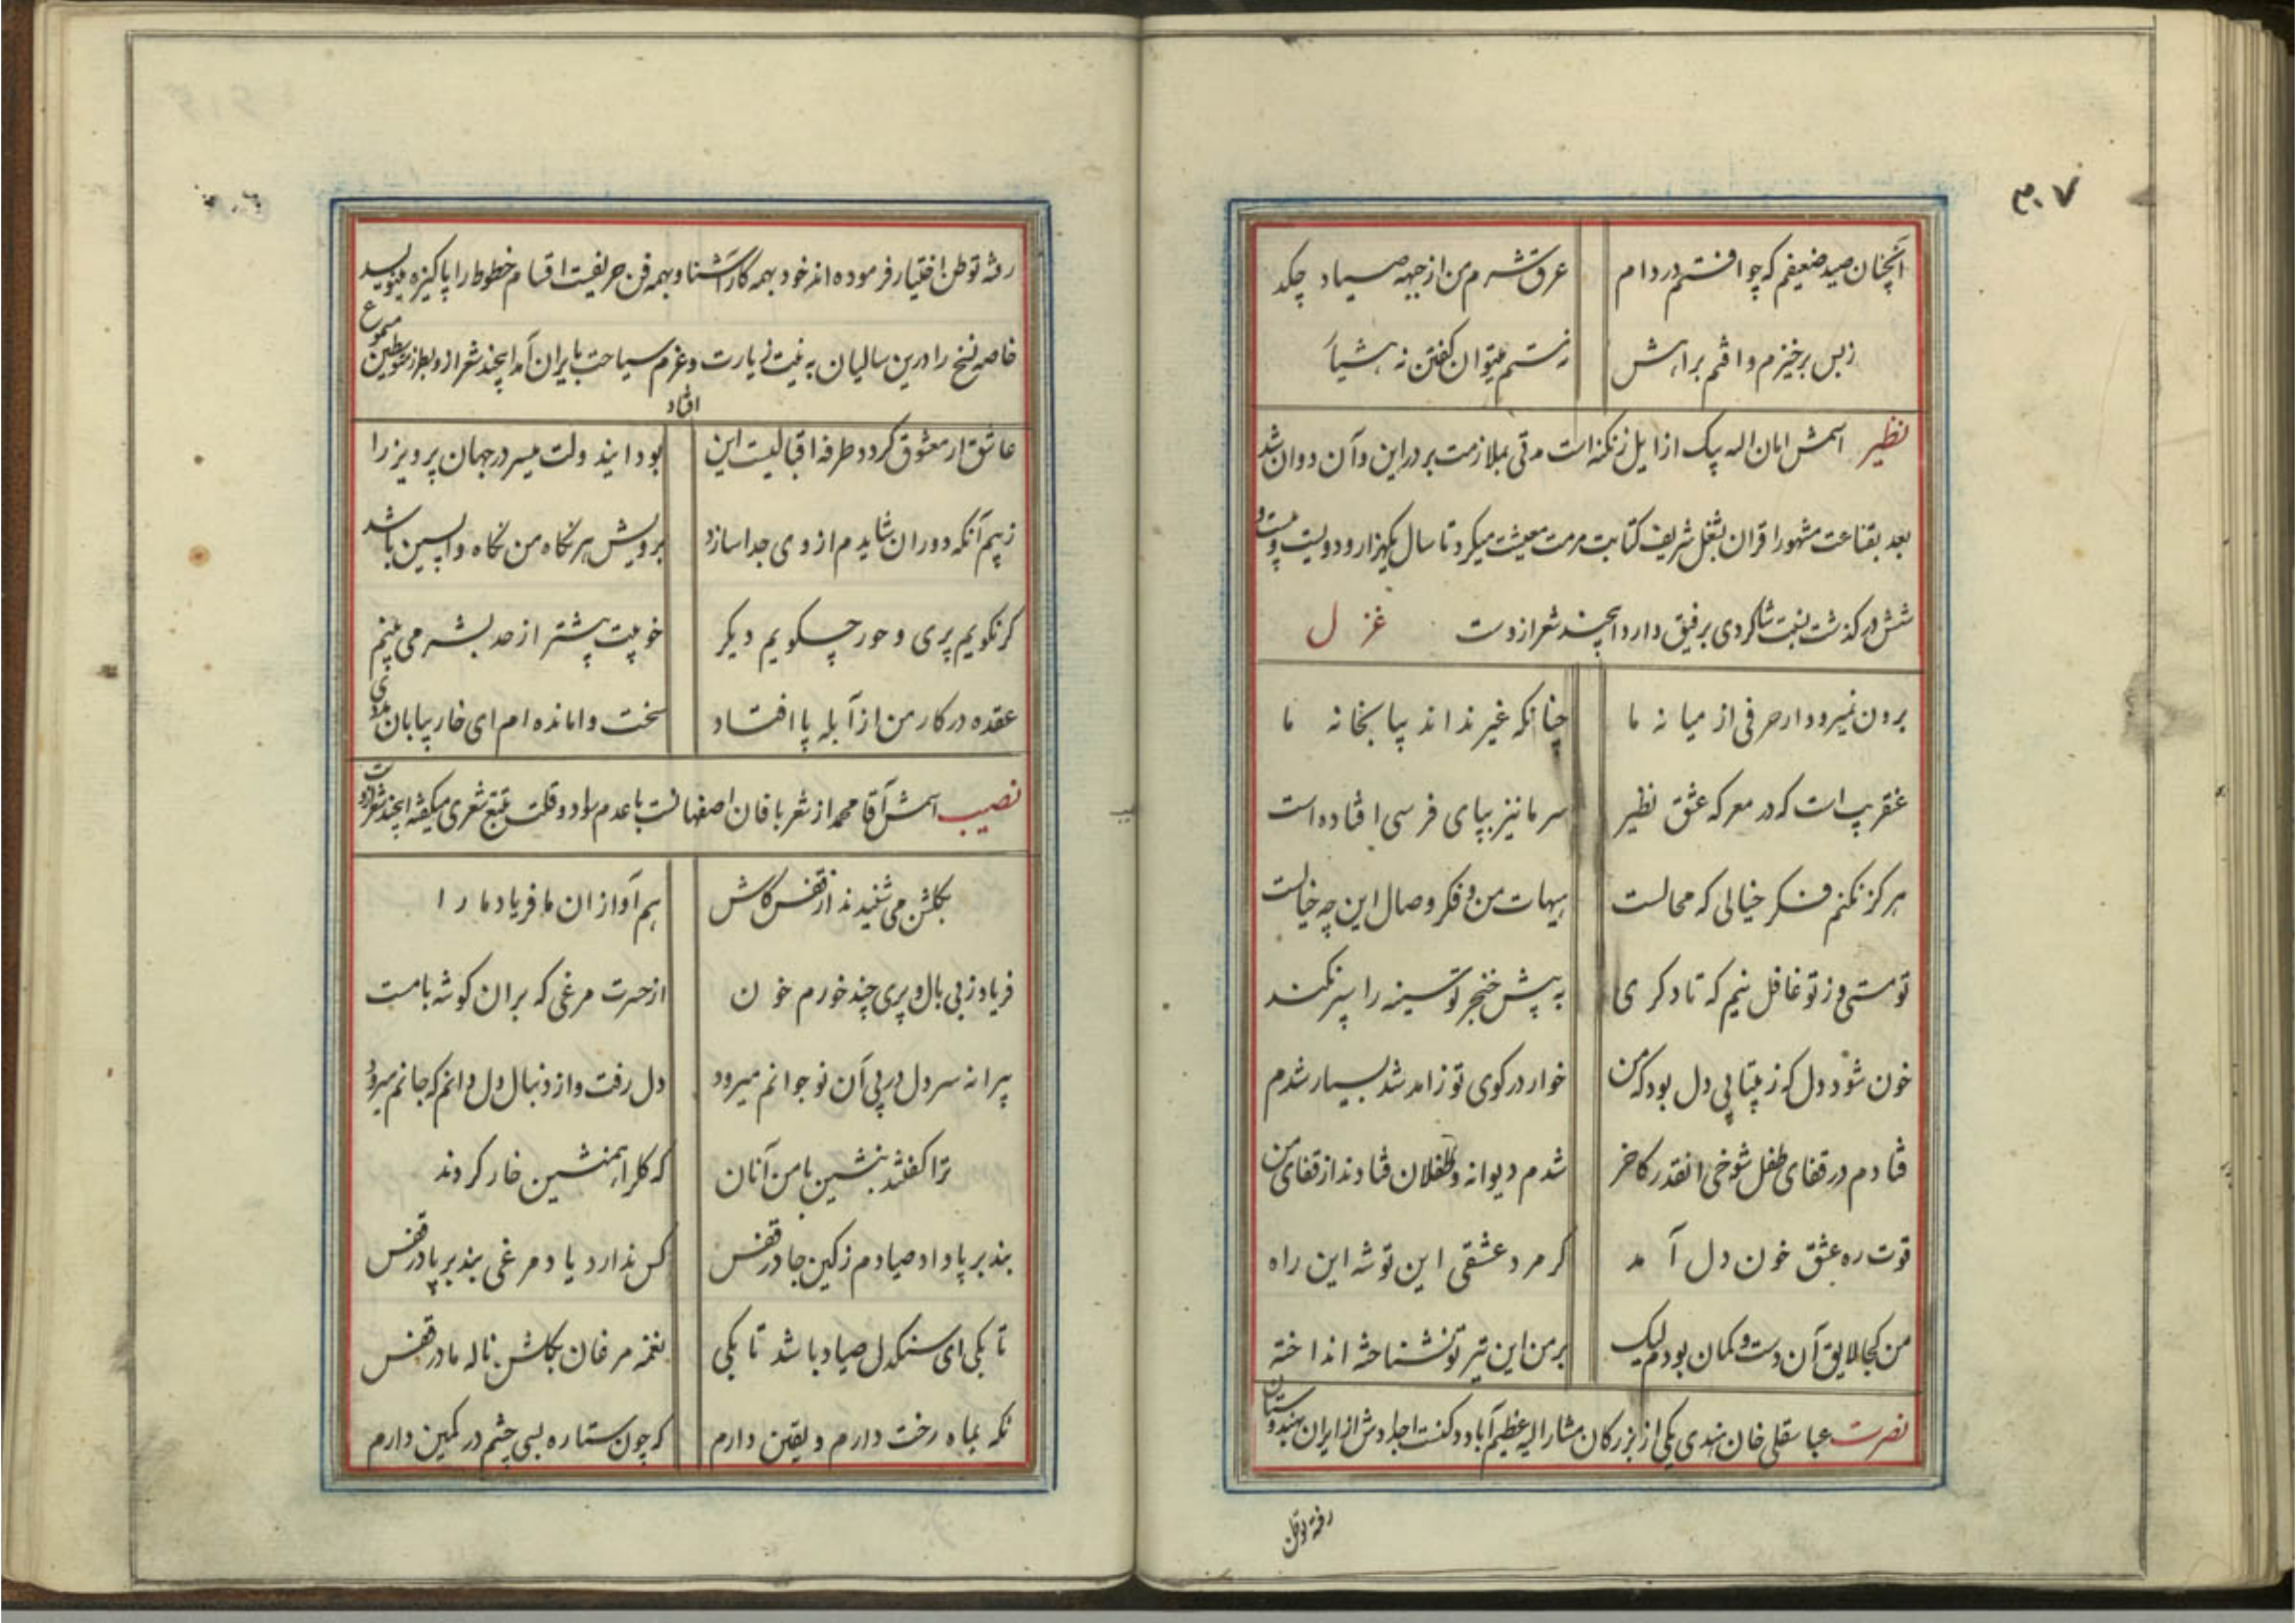 ۳۰۷
آنچنان صید ضعیفم که چو افتم در دام عرق شرم من از جبهه صیاد چکد
زبس برخیزم و افتم براهش نه مستم میتوان گفتن نه هشیار
نظیر اسمش امان اله بیک از ایل زنکنه است مدتی بملازمت بر در این و آن دوان شد
بعد بقناعت مشهور اقران بشغل شریف کتابت مرمت معیشت میکرد تا سال یکهزار و دویست و بیست و
شش در کذشت نسبت شاکردی برفیق دارد اینچند شعر ازوست غزل
برون نمیرود ار حرفی از میانه ما چنانکه غیر نداند بیا بخانه ما
عنقریب است که در معرکه عشق نظیر سر ما نیز بپای فرسی افتاده است
هرکز نکنم فکر خیالی که محالست هیهات من و فکر وصال این چه خیالست
تو مستی و ز تو غافل نیم که تا دکری به پیش خنجر تو سینه را سپر نکند
خون شود دل که ز بیتابی دل بود که من خوار در کوی تو ز آمد شد بسیار شدم
فتادم در قفای طفل شوخی انقدر کاخر شدم دیوانه و طفلان فتادند از قفای من
قوت ره عشق خون دل آمد کر مرد عشقی این توشه این راه
من کجا لایق آن دست و کمان بودم لیک بر من این تیر تو نشناخته انداخته
نصرت عباسقلی خان هندی یکی از بزرکان مشار الیه عظیم آباد و کفت اجدادش از ایران بهندوستان
رفته توطن
رفته توطن اختیار فرموده اند خود بهمه کار آشنا و بهمه فن حریفست اقسام خطوط را پاکیزه مینویسد
خاصه نسخ را درین سالیان به نیت زیارت و عزم سیاحت بایران آمد اینچند شعر ازو بطرز متوسطین مسموع
افتاد
عاشق ار معشوق کردد طرفه اقبالیست این بود ایندولت میسر در جهان پرویز را
ز بیم آنکه دوران شاید م از وی جدا سازد برویش هر نکاه من نکاه واپسین باشد
کر نکویم پری و حور چه کویم دیکر خوبیت بیشتر از حد بشر می بینم
عقده در کار من از آبله پا افتاد سخت وامانده ام ای خار بیابان مددی
نصیب اسمش آقا محمد از شعر بافان اصفهانست با عدم سواد و قلت تتبع شعری میکفته اینچند شعر ازوست
بکلشن می شنیدند از قفس کاش هم آوازان ما فریاد ما را
فریاد ز بی بال و پری چند خورم خون از حسرت مرغی که بران کوشه بامست
پیرانه سر دل در پی آن نوجوانم میرود دل رفت و از دنبال دل دانم که جانم میرود
ترا کفتند بنشین با من آنان که کل را همنشین خار کردند
بند بر پا داد صیادم زکین جا در قفس کس ندارد یاد مرغی بند بر پا در قفس
تا بکی ای سنکدل صیاد باشد تا بکی نغمه مرغان بکلشن ناله ما در قفس
نکه بماه رخت دارم و یقین دارم که چون ستاره بسی چشم در کمین دارم